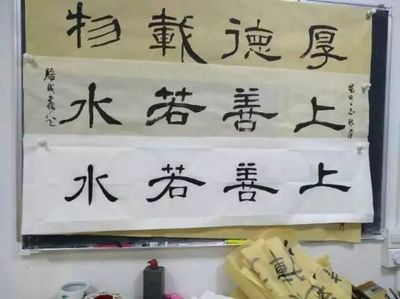 厚德載物
上善若水
上善若水